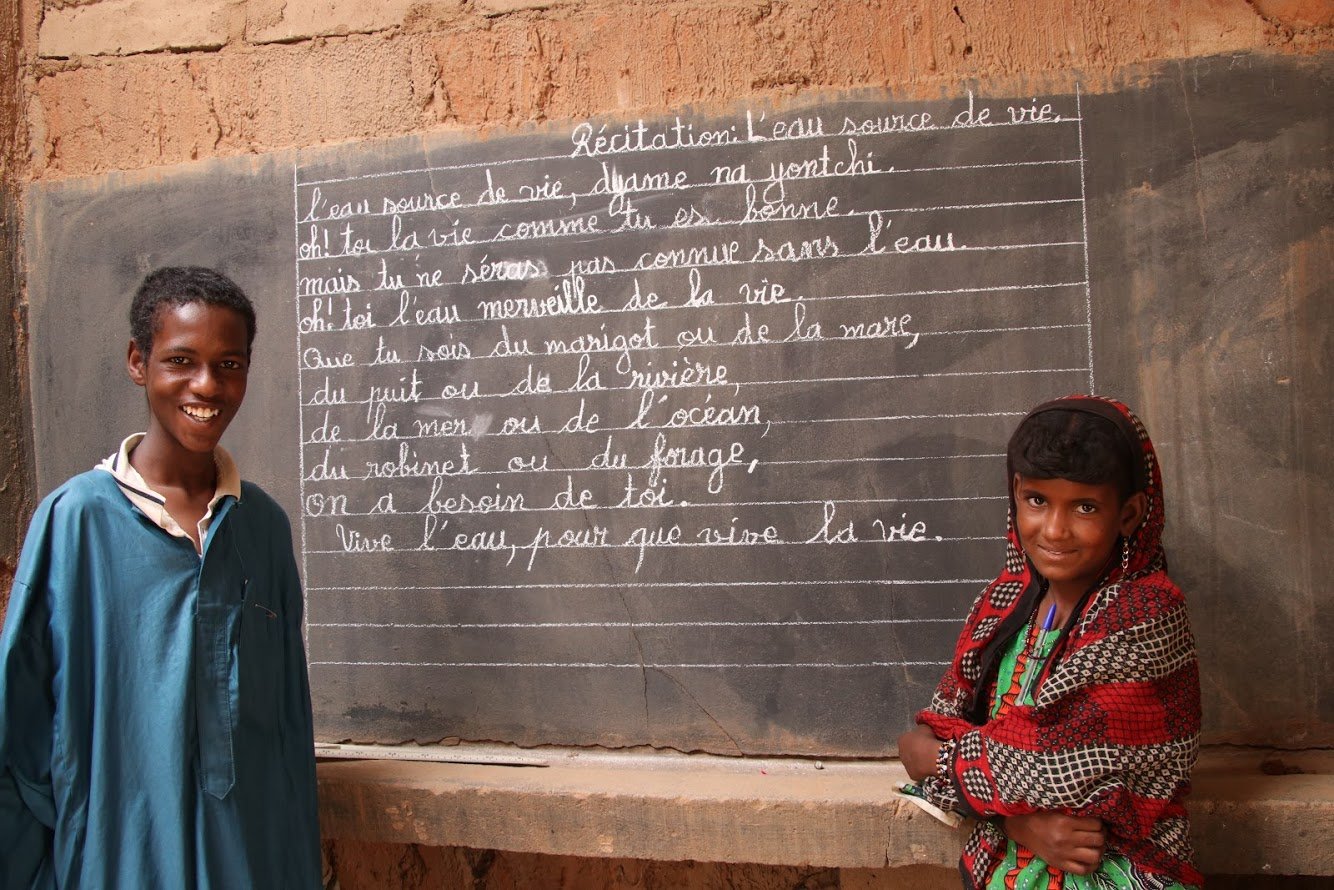 Récitation: L'eau source de vie.
l'eau source de vie, dyame na yontchi.
oh! toi la vie comme tu es bonne.
mais tu ne séras pas connue sans l'eau.
oh! toi l'eau merveille de la vie.
Que tu sois du marigot ou de la mare,
du puit ou de la rivière,
de la mer ou de l'océan,
du robinet ou du forage,
on a besoin de toi.
Vive l'eau, pour que vive la vie.